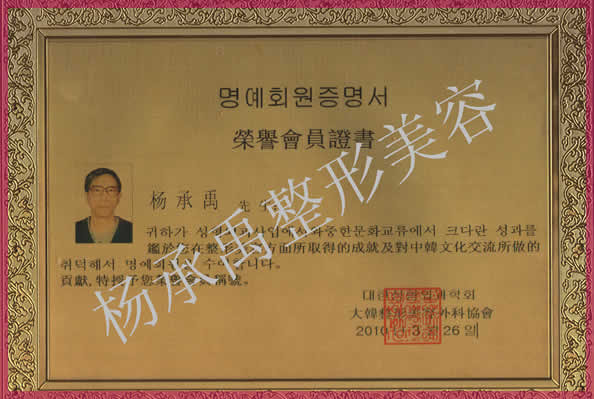 명예회원증명서
榮譽會員證書
杨承禹 先生
귀하가 성형외과산업에서와중한문화교류에서 크다란 성과를
鑑於您在整形外科方面所取得的成就及對中韓文化交流所做的
취덕해서 명예회원 수여합니다。
貢獻,特授予您榮譽會員稱號。
대한성형외과학회
大韓整形美容外科協會
2010年3월26일
杨承禹整形美容